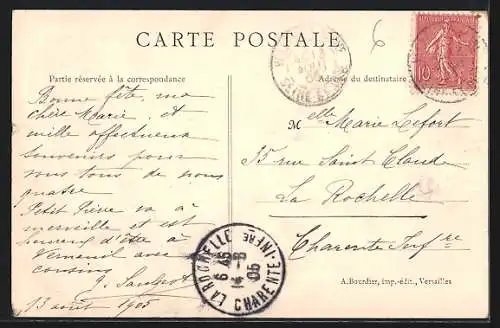 CARTE POSTALE
Partie réservée à la correspondance
Adresse du destinataire
Bonne fête, ma
chère Marie et
mille affectueux
souvenirs pour
vous tous de nous
quatre
Petit Pierre va à
merveille et est
heureux d'être à
Verneuil avec
cousins
13 août 1905
Melle Marie Lefort
35 rue Saint Claude
La Rochelle
Charente Infre
10
SEINE-ET-OISE
LA ROCHELLE
6 45
05
CHARENTE-INFRE
A. Bourdier, imp.-édit., Versailles
6